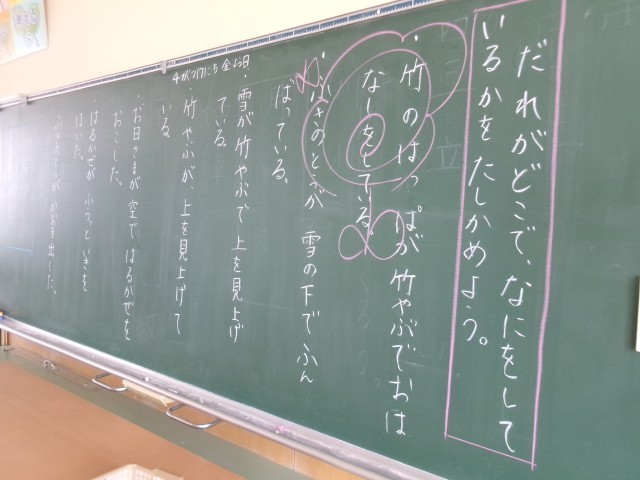 だれがどこで、なにをして
いるかをたしかめよう。
・竹のはっぱが竹やぶでおは
なしをしている。
・ふきのとうが雪の下でふん
ばっている。
・雪が竹やぶで上を見上げ
ている。
・竹やぶが、上を見上げて
いる。
・お日さまが空ではるかぜを
おこした。
・はるかぜがふうっといきを
はいた。
・ふきのとうがかおを出した。
4がつ17にち金よう日